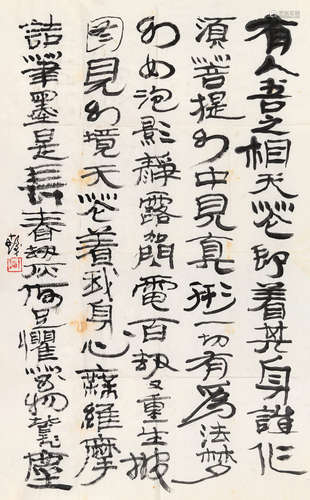 有人吾之相天花即着其身誰作
須菩提幻中見真形一切有爲法夢
幻如泡影靜露間電百劫又重生披
圖見幻境天花着我身心維摩
詰筆墨是長春劫灰何足懼萬物塵